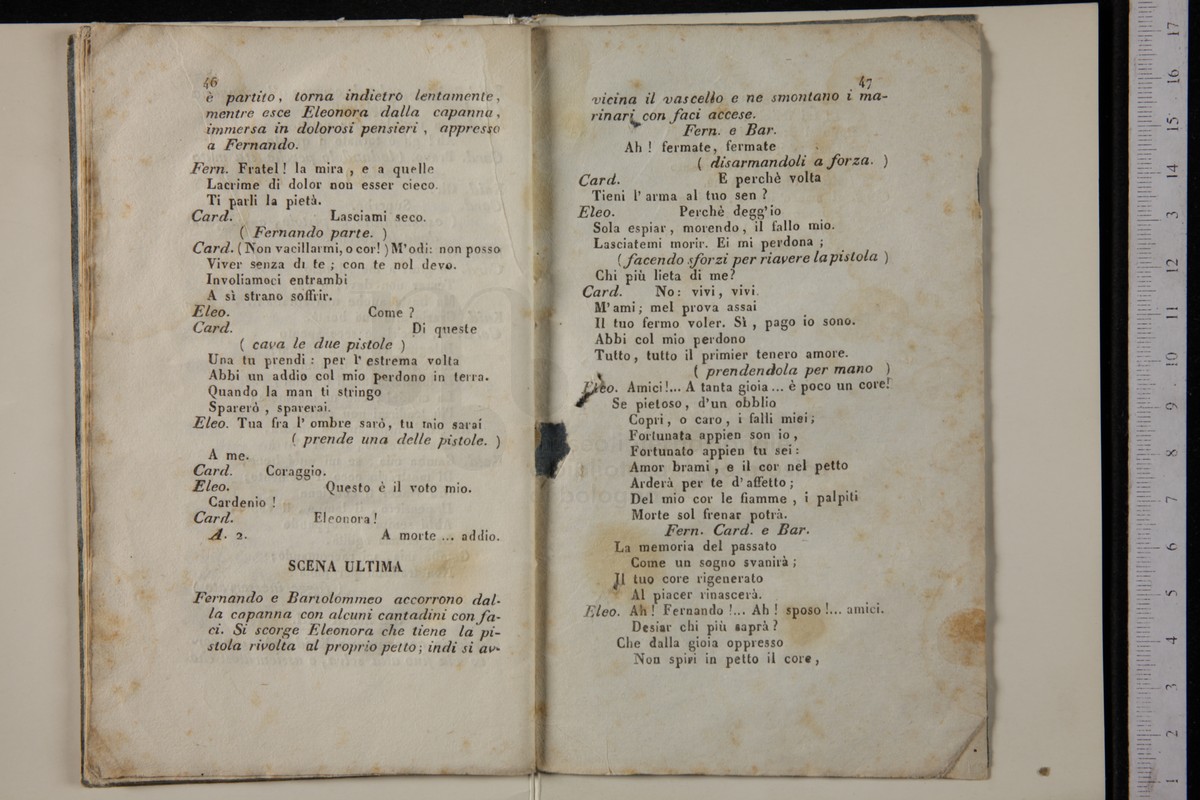 46
è partito, torna indietro lentamente,
mentre esce Eleonora dalla capanna,
immersa in dolorosi pensieri, appresso
a Fernando.
Fern. Fratel! la mira, e a quelle
Lacrime di dolor non esser cieco.
Ti parli la pietà.
Card. Lasciami seco.
( Fernando parte. )
Card. (Non vacillarmi, o cor!) M'odi: non posso
Viver senza di te; con te nol devo.
Involiamoci entrambi
A sì strano soffrir.
Eleo. Come?
Card. Di queste
( cava le due pistole )
Una tu prendi: per l'estrema volta
Abbi un addio col mio perdono in terra.
Quando la man ti stringo
Sparerò, sparerai.
Eleo. Tua fra l'ombre sarò, tu mio sarai
( prende una delle pistole. )
A me.
Card. Coraggio.
Eleo. Questo è il voto mio.
Cardenio!
Card. Eleonora!
A. 2. A morte ... addio.
SCENA ULTIMA
Fernando e Bartolommeo accorrono dal-
la capanna con alcuni cantadini con fa-
ci. Si scorge Eleonora che tiene la pi-
stola rivolta al proprio petto; indi si av-
47
vicina il vascello e ne smontano i ma-
rinari con faci accese.
Fern. e Bar.
Ah! fermate, fermate
( disarmandoli a forza. )
Card. E perchè volta
Tieni l'arma al tuo sen?
Eleo. Perchè degg'io
Sola espiar, morendo, il fallo mio.
Lasciatemi morir. Ei mi perdona;
(facendo sforzi per riavere la pistola )
Chi più lieta di me?
Card. No: vivi, vivi.
M'ami; mel prova assai
Il tuo fermo voler. Sì, pago io sono.
Abbi col mio perdono
Tutto, tutto il primier tenero amore.
( prendendola per mano )
Eleo. Amici!... A tanta gioia ... è poco un core!
Se pietoso, d'un obblio
Copri, o caro, i falli miei;
Fortunata appien son io,
Fortunato appien tu sei:
Amor brami, e il cor nel petto
Arderà per te d'affetto;
Del mio cor le fiamme, i palpiti
Morte sol frenar potrà.
Fern. Card. e Bar.
La memoria del passato
Come un sogno svanirà;
Il tuo core rigenerato
Al piacer rinascerà.
Eleo. Ah! Fernando!... Ah! sposo!... amici.
Desiar chi più saprà?
Che dalla gioia oppresso
Non spiri in petto il core,
1 2 3 4 5 6 7 8 9 10 11 12 13 14 15 16 17